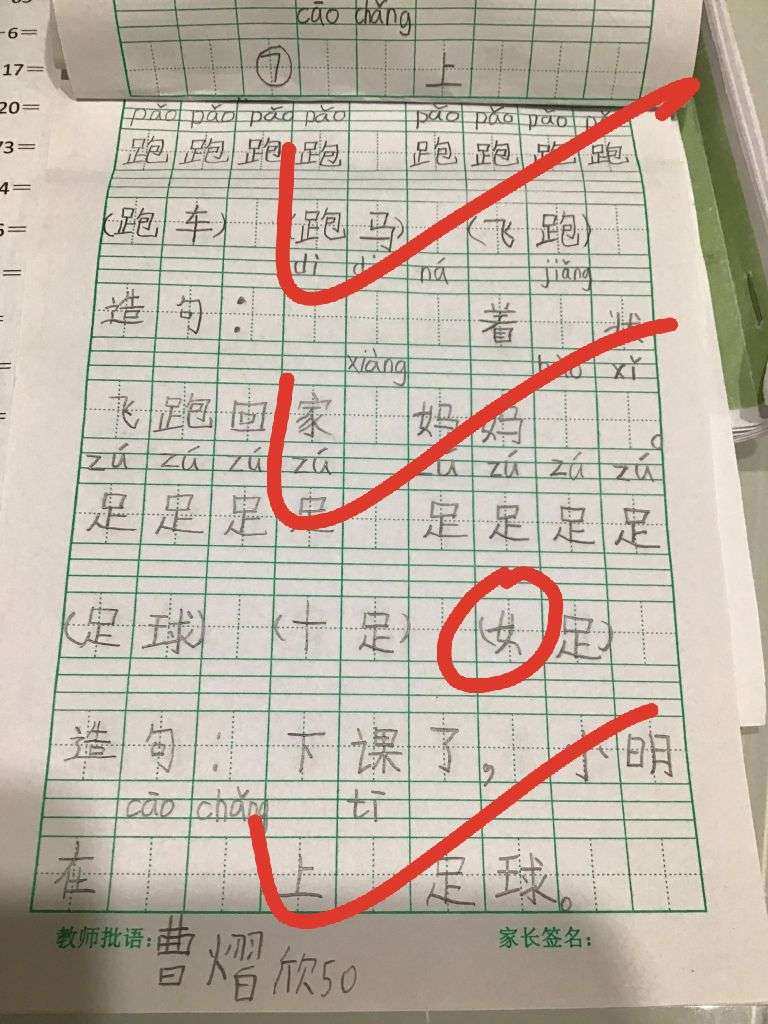 6=
17=
20=
73=
4=
5=
cāo chǎng
⑦ 上
pǎo pǎo pǎo pǎo pǎo pǎo pǎo pǎo
跑 跑 跑 跑 跑 跑 跑 跑
(跑车) (跑马) (飞跑)
dì di ná jiǎng
造句: 着 状
xiàng bào xǐ
飞跑回家 妈妈 。
zú zú zú zú zú zú zú zú
足 足 足 足 足 足 足 足
(足球) (十足) (女足)
造句:下课了,小明
cāo chǎng tī
在 上 足球。
教师批语: 家长签名:
曹熠欣50